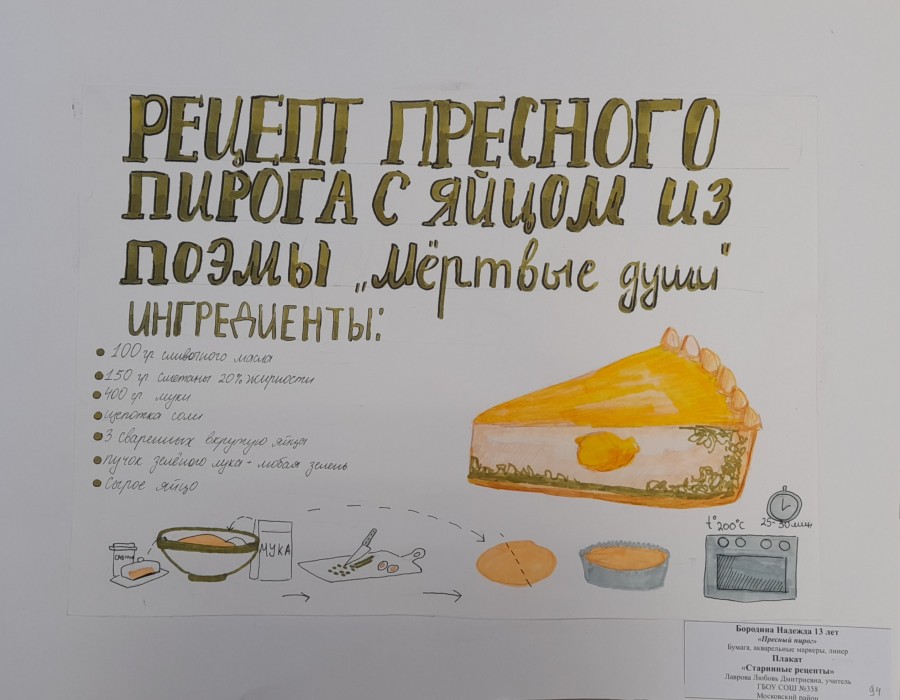 РЕЦЕПТ ПРЕСНОГО
ПИРОГА С ЯЙЦОМ ИЗ
ПОЭМЫ „Мёртвые души"
ИНГРЕДИЕНТЫ:
• 100 гр сливочного масла
• 150 гр сметаны 20% жирности
• 400 гр муки
• щепотка соли
• 3 сваренных вкрутую яйца
• пучок зелёного лука + любая зелень
• Сырое яйцо
МУКА
t° 200°С
25-30 мин
Бородина Надежда 13 лет
«Пресный пирог»
Бумага, акварельные маркеры, линер
Плакат
«Старинные рецепты»
Лаврова Любовь Дмитриевна, учитель
ГБОУ СОШ №358
Московский район
94